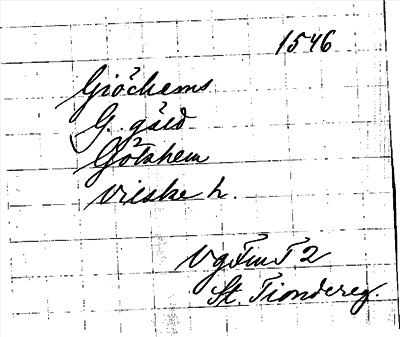 1546
Giöchems
G. gäld
Götshem
Vilske h.
VgFmT 2
St. Tiondereg.